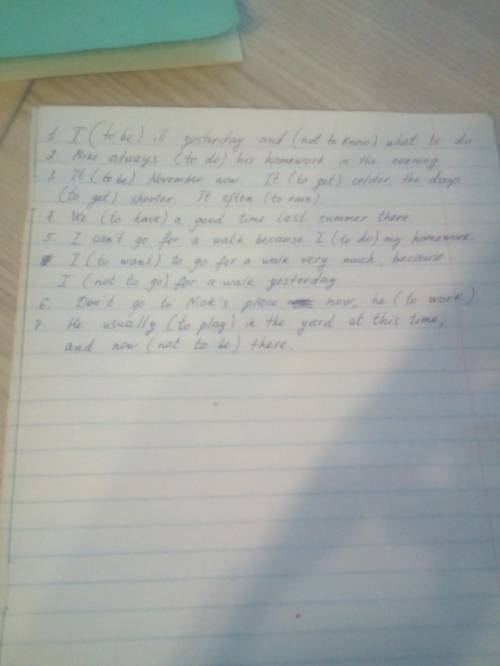 1. I (to be) ill yesterday and (not to know) what to do.
2. Mike always (to do) his homework in the evening
3. It (to be) November now. It (to get) colder, the days
(to get) shorter. It often (to rain).
4. We (to have) a good time last summer there
5. I can't go for a walk because I (to do) my homework.
I (to want) to go for a walk very much, because
I (not to go) for a walk yesterday
6. Don't go to Nick's place now, he (to work)
7. He usually (to play) in the yard at this time,
and now (not to be) there.